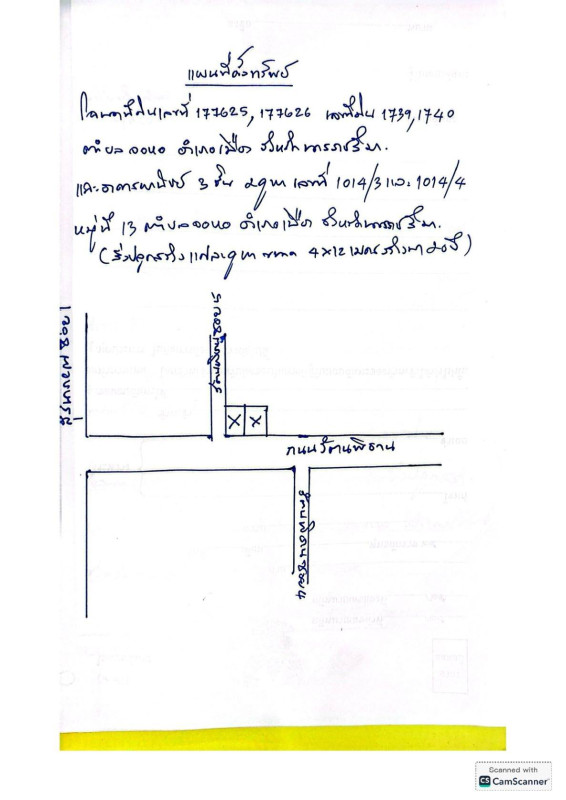 แผนที่ตั้งทรัพย์
โฉนดที่ดินเลขที่ 177625, 177626 เลขที่ดิน 1739, 1740
ตำบล จอหอ อำเภอเมือง จังหวัดนครราชสีมา.
และอาคารพาณิชย์ 3 ชั้น 2 คูหา เลขที่ 1014/3 และ 1014/4
หมู่ที่ 13 ตำบลจอหอ อำเภอเมือง จังหวัดนครราชสีมา.
(สิ่งปลูกสร้าง แต่ละคูหา ขนาด 4x12 เมตร
ซอย 5
ซอย 1
X X
ถนนรัตนพิธาน
Scanned with
CS CamScanner